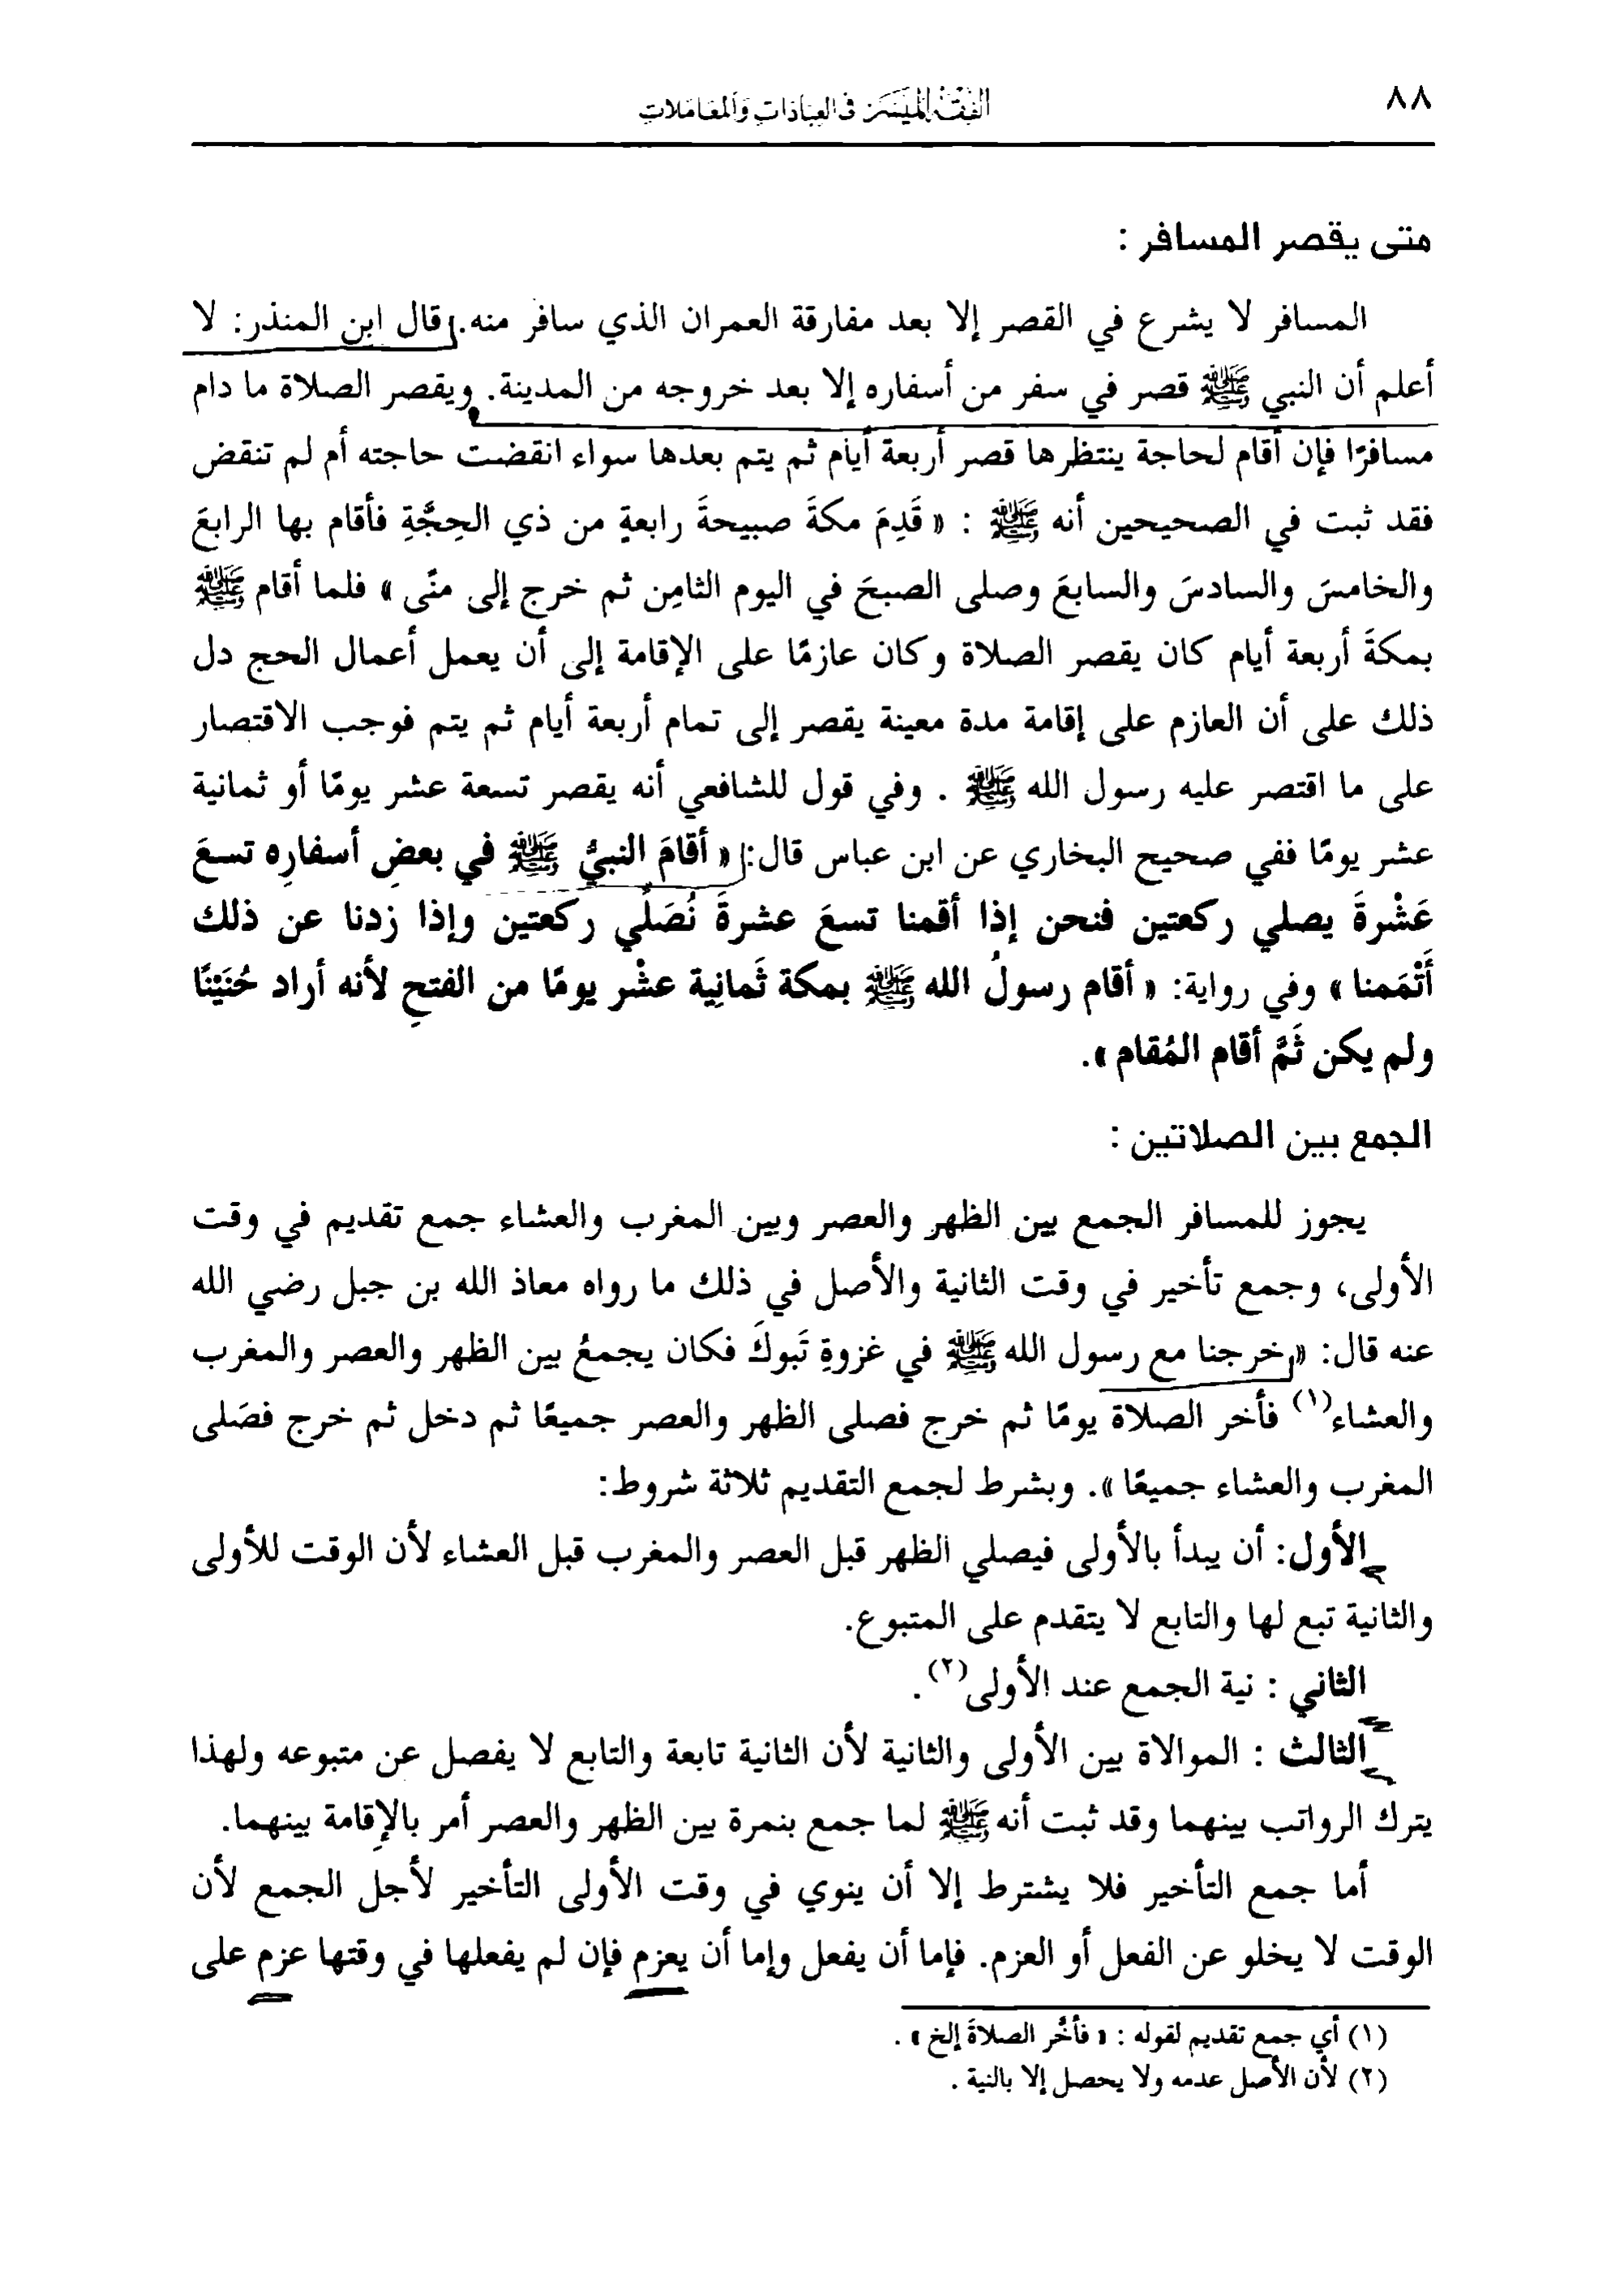 ٨٨
الفقه الميسر في العبادات والمعاملات
متى يقصر المسافر :
المسافر لا يشرع في القصر إلا بعد مفارقة العمران الذي سافر منه. قال ابن المنذر: لا
أعلم أن النبي ﷺ قصر في سفر من أسفاره إلا بعد خروجه من المدينة. ويقصر الصلاة ما دام
مسافرًا فإن أقام لحاجة ينتظرها قصر أربعة أيام ثم يتم بعدها سواء انقضت حاجته أم لم تنقض
فقد ثبت في الصحيحين أنه ﷺ : « قَدِمَ مكةَ صبيحةَ رابعةٍ من ذي الحِجَّةِ فأقام بها الرابعَ
والخامسَ والسادسَ والسابعَ وصلى الصبحَ في اليوم الثامِن ثم خرج إلى منًى » فلما أقام ﷺ
بمكةَ أربعة أيام كان يقصر الصلاة وكان عازمًا على الإقامة إلى أن يعمل أعمال الحج دل
ذلك على أن العازم على إقامة مدة معينة يقصر إلى تمام أربعة أيام ثم يتم فوجب الاقتصار
على ما اقتصر عليه رسول الله ﷺ . وفي قول للشافعي أنه يقصر تسعة عشر يومًا أو ثمانية
عشر يومًا ففي صحيح البخاري عن ابن عباس قال: « أقامَ النبيُّ ﷺ في بعضِ أسفارِه تسعَ
عَشْرةَ يصلي ركعتين فنحن إذا أقمنا تسعَ عشرةَ نُصَلِّي ركعتين وإذا زدنا عن ذلك
أَتْمَمنا » وفي رواية: « أقام رسولُ الله ﷺ بمكة ثَمانِية عشْر يومًا من الفتحِ لأنه أراد حُنَيْنًا
ولم يكن ثَمَّ أقام المُقام ».
الجمع بين الصلاتين :
يجوز للمسافر الجمع بين الظهر والعصر وبين المغرب والعشاء جمع تقديم في وقت
الأولى، وجمع تأخير في وقت الثانية والأصل في ذلك ما رواه معاذ الله بن جبل رضي الله
عنه قال: « خرجنا مع رسول الله ﷺ في غزوةِ تَبوكَ فكان يجمعُ بين الظهر والعصر والمغرب
والعشاء(١) فأخر الصلاة يومًا ثم خرج فصلى الظهر والعصر جميعًا ثم دخل ثم خرج فصَلى
المغرب والعشاء جميعًا ». وبشرط لجمع التقديم ثلاثة شروط:
الأول: أن يبدأ بالأولى فيصلي الظهر قبل العصر والمغرب قبل العشاء لأن الوقت للأولى
والثانية تبع لها والتابع لا يتقدم على المتبوع.
الثاني : نية الجمع عند الأولى(٢) .
الثالث : الموالاة بين الأولى والثانية لأن الثانية تابعة والتابع لا يفصل عن متبوعه ولهذا
يترك الرواتب بينهما وقد ثبت أنه ﷺ لما جمع بنمرة بين الظهر والعصر أمر بالإِقامة بينهما.
أما جمع التأخير فلا يشترط إلا أن ينوي في وقت الأولى التأخير لأجل الجمع لأن
الوقت لا يخلو عن الفعل أو العزم. فإما أن يفعل وإما أن يعزم فإن لم يفعلها في وقتها عزم على
(١) أي جمع تقديم لقوله : « فأخَّر الصلاةَ إلخ » .
(٢) لأن الأصل عدمه ولا يحصل إلا بالنية .